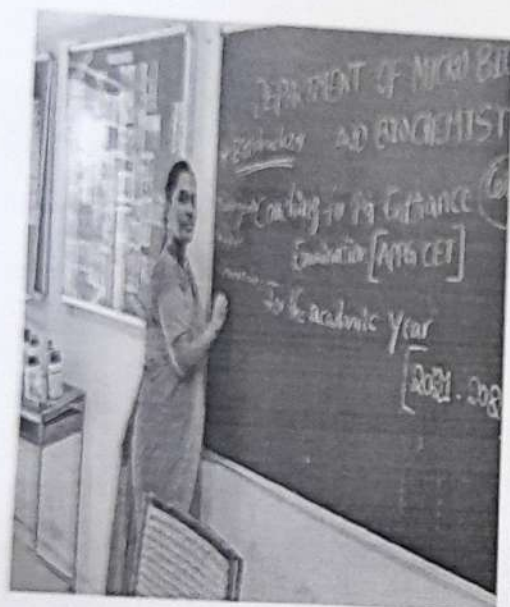 DEPARTMENT OF MICRO BI
AND BIOCHEMIST
Coaching for PG Entrance
Examination [APPG CET]
For the academic year
[2021-202